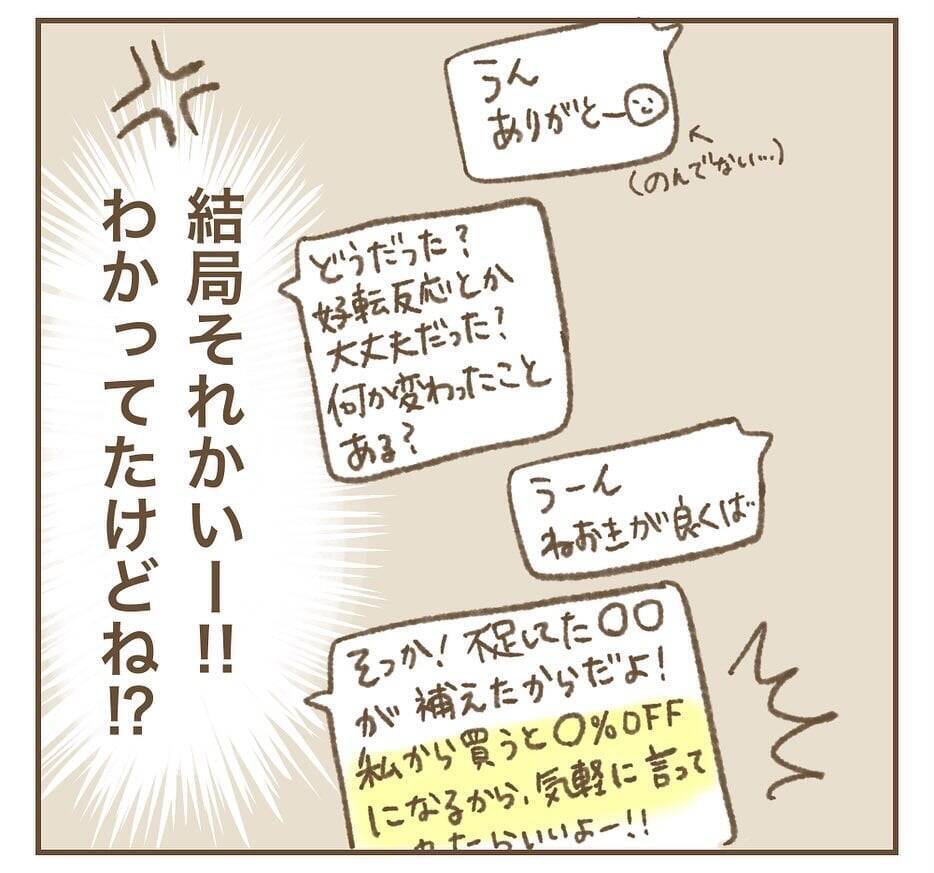 うん
ありがとー
(のんでない…)
どうだった?
好転反応とか
大丈夫だった?
何か変わったこと
ある?
うーん
ねおきが良くば…
そっか!不足してた〇〇
が補えたからだよ!
私から買うと〇%OFF
になるから、気軽に言って
れたらいいよー!!
結局それかいー!!
わかってたけどね!?